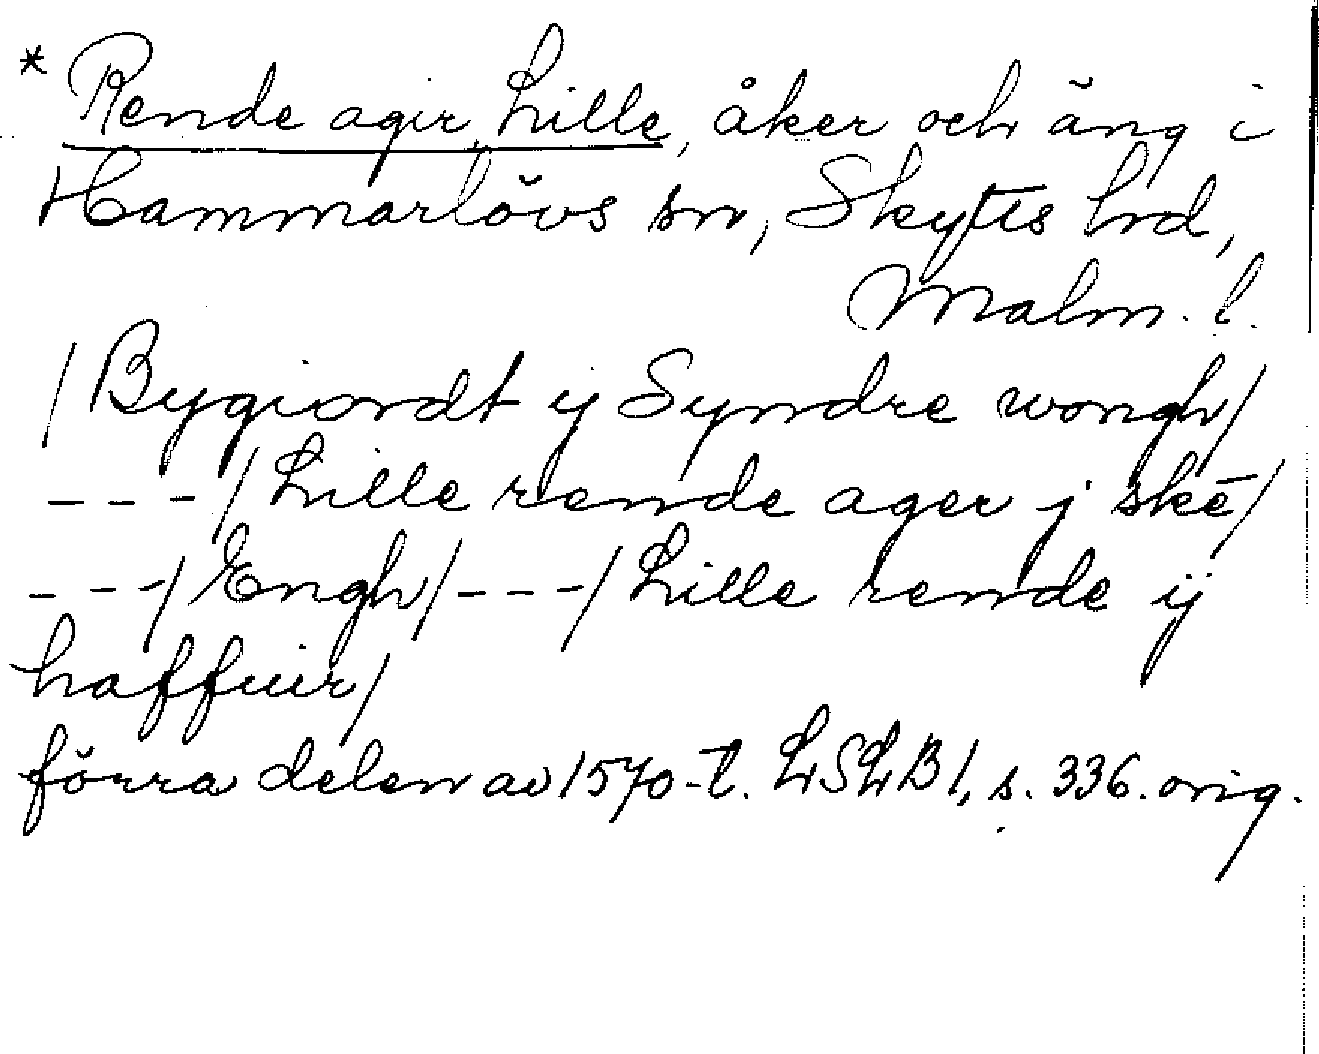 * Rende ager, Lille, åker och äng i
Hammarlövs sn, Skytts hd,
Malm. l.
/Bygiordt ij Syndre wongh/
---/Lille rende ager j skē/
---/Engh/---/Lille rende ij
haffuir/
förra delen av 1570-t. LSLB1, s. 336. orig.